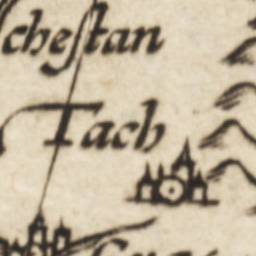 chestan
Tach